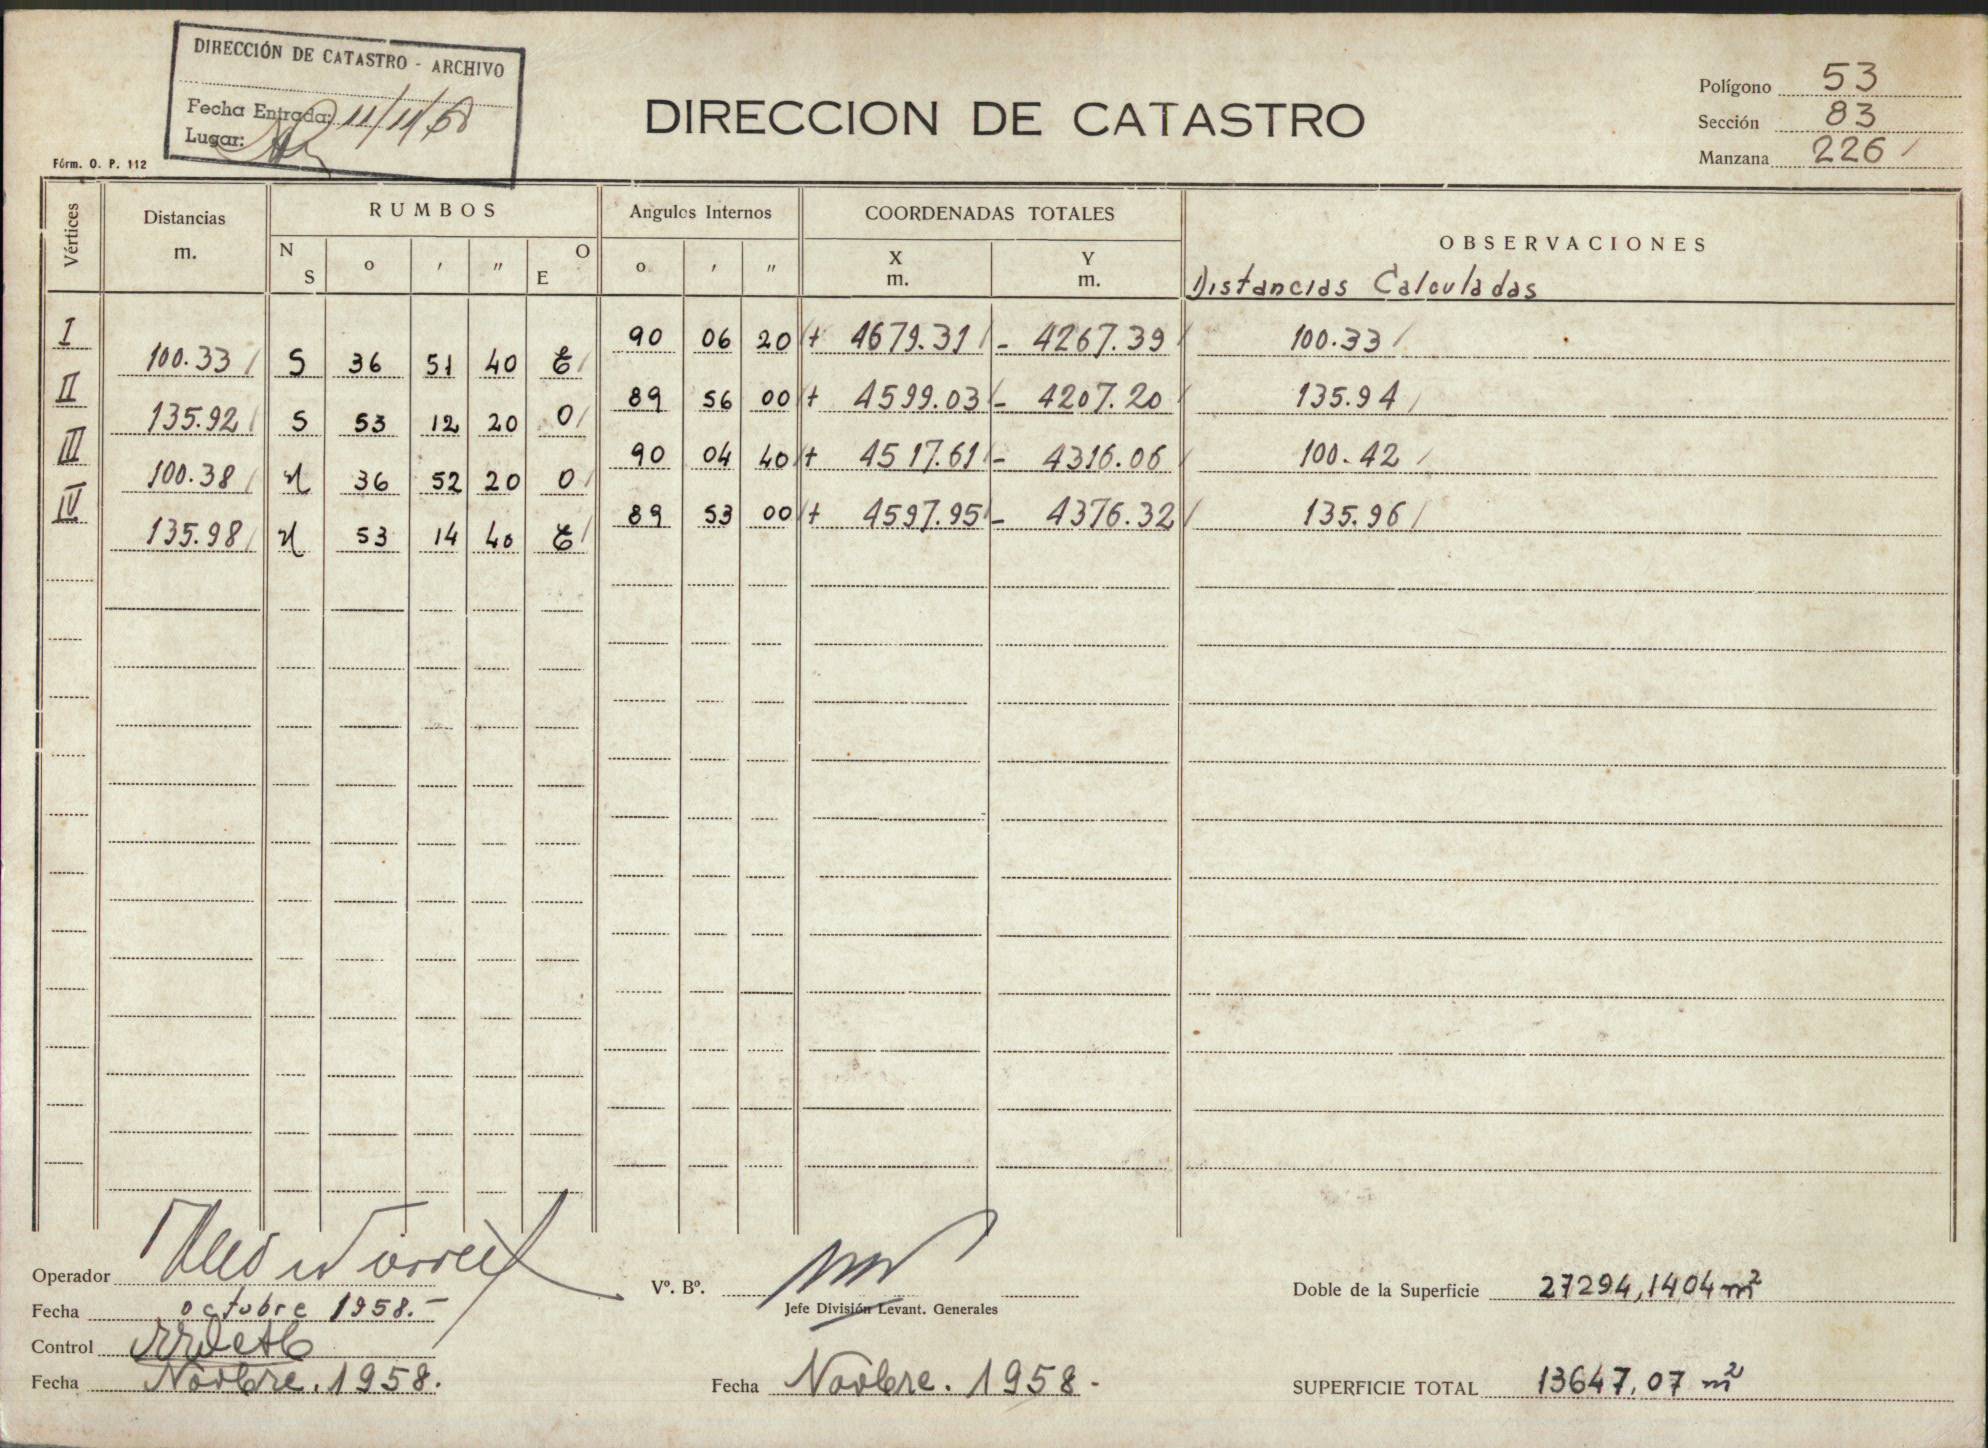 DIRECCIÓN DE CATASTRO - ARCHIVO
Fecha Entrada: 11/11/58
Lugar:
Fórm. O. P. 112
DIRECCION DE CATASTRO
Polígono 53
Sección 83
Manzana 226
Vértices Distancias m. RUMBOS Angulos Internos COORDENADAS TOTALES OBSERVACIONES
N S o ' " O E o ' " X m. Y m. Distancias Calculadas
I 90 06 20 + 4679.31 - 4267.39 100.33
100.33 S 36 51 40 E
II 89 56 00 + 4599.03 - 4207.20 135.94
135.92 S 53 12 20 O
III 90 04 40 + 4517.61 - 4316.06 100.42
100.38 N 36 52 20 O
IV 89 53 00 + 4597.95 - 4376.32 135.96
135.98 N 53 14 40 E
Operador
Fecha octubre 1958.-
Control
Fecha Novbre. 1958.
Vº. Bº.
Jefe División Levant. Generales
Fecha Novbre. 1958.-
Doble de la Superficie 27294,1404 m²
SUPERFICIE TOTAL 13647,07 m²